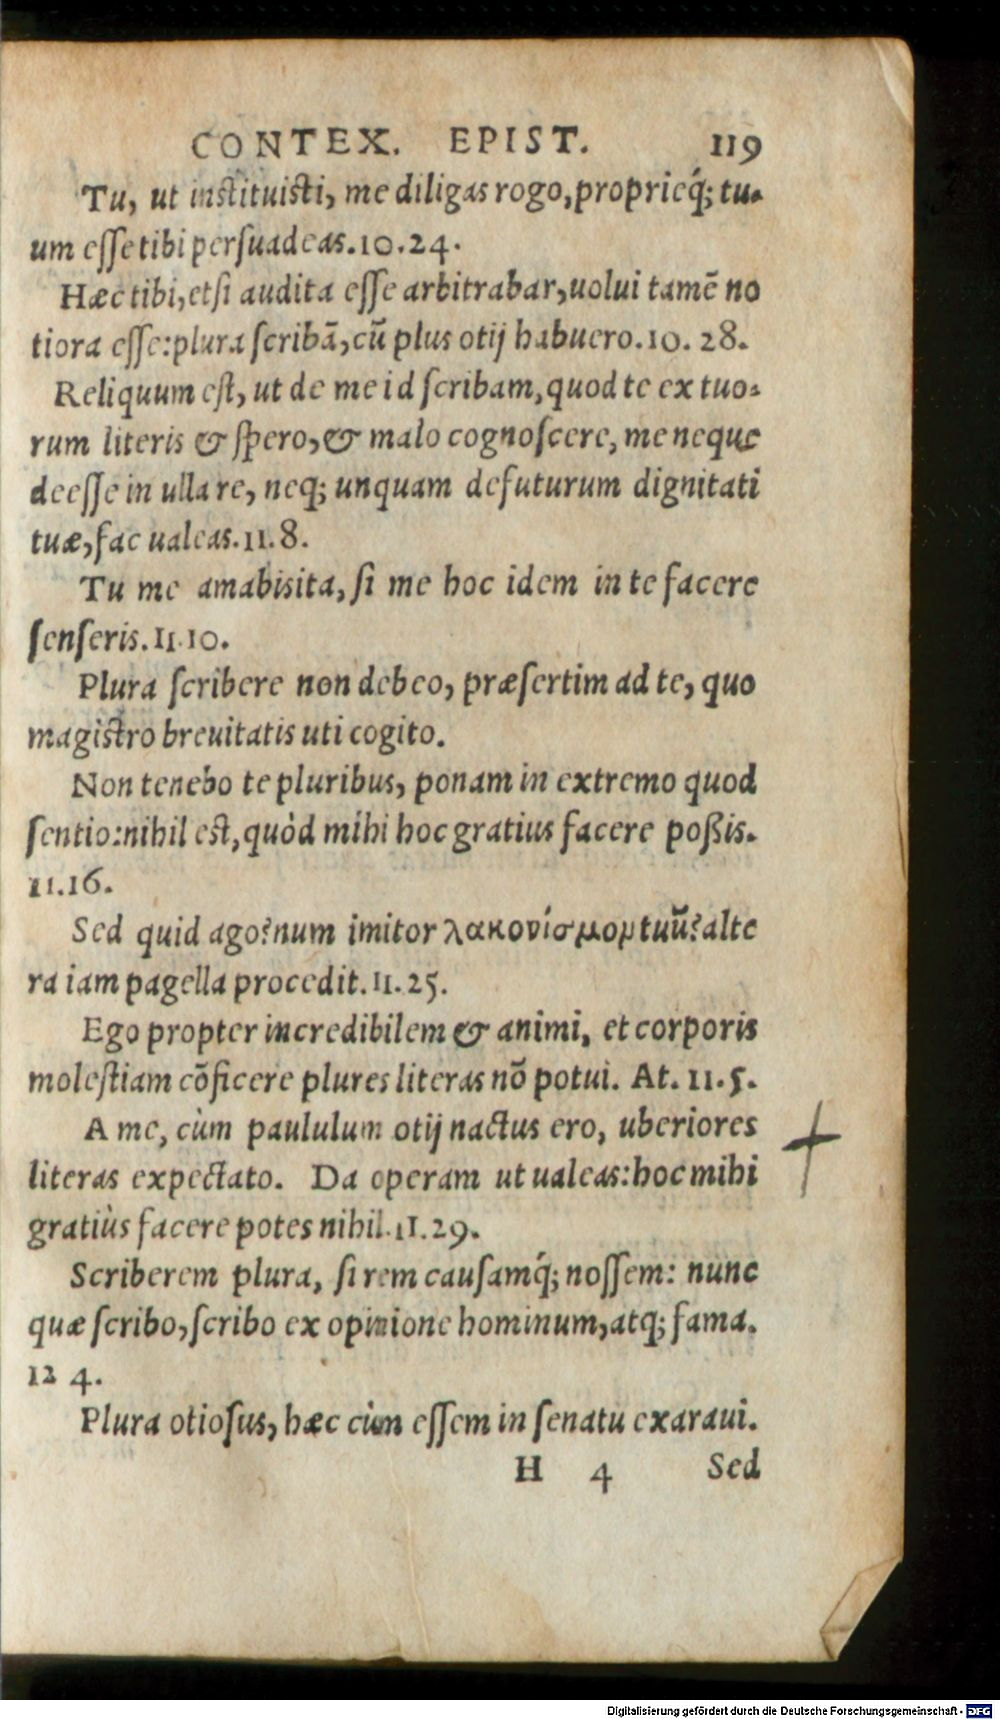 CONTEX. EPIST. 119
Tu, ut instituisti, me diligas rogo, proprieq́; tu-
um esse tibi persuadeas. 10. 24.
Hæc tibi, etsi audita esse arbitrabar, uolui tamē no
tiora esse: plura scribā, cū plus otij habuero. 10. 28.
Reliquum est, ut de me id scribam, quod te ex tuo-
rum literis & spero, & malo cognoscere, me neque
deesse in ulla re, neq; unquam defuturum dignitati
tuæ, fac ualeas. 11. 8.
Tu me amabis ita, si me hoc idem in te facere
senseris. 11. 10.
Plura scribere non debeo, præsertim ad te, quo
magistro breuitatis uti cogito.
Non tenebo te pluribus, ponam in extremo quod
sentio: nihil est, quòd mihi hoc gratius facere poßis.
11. 16.
Sed quid ago? num imitor λακονίσμομ tuū? alte
ra iam pagella procedit. 11. 25.
Ego propter incredibilem & animi, et corporis
molestiam cōficere plures literas nō potui. At. 11. 5.
A me, cùm paululum otij nactus ero, uberiores
literas expectato. Da operam ut ualeas: hoc mihi
gratiùs facere potes nihil. 11. 29.
Scriberem plura, si rem causamq́; nossem: nunc
quæ scribo, scribo ex opinione hominum, atq; fama.
12 4.
Plura otiosus, hæc cùm essem in senatu exaraui.
H 4 Sed
Digitalisierung gefördert durch die Deutsche Forschungsgemeinschaft - DFG